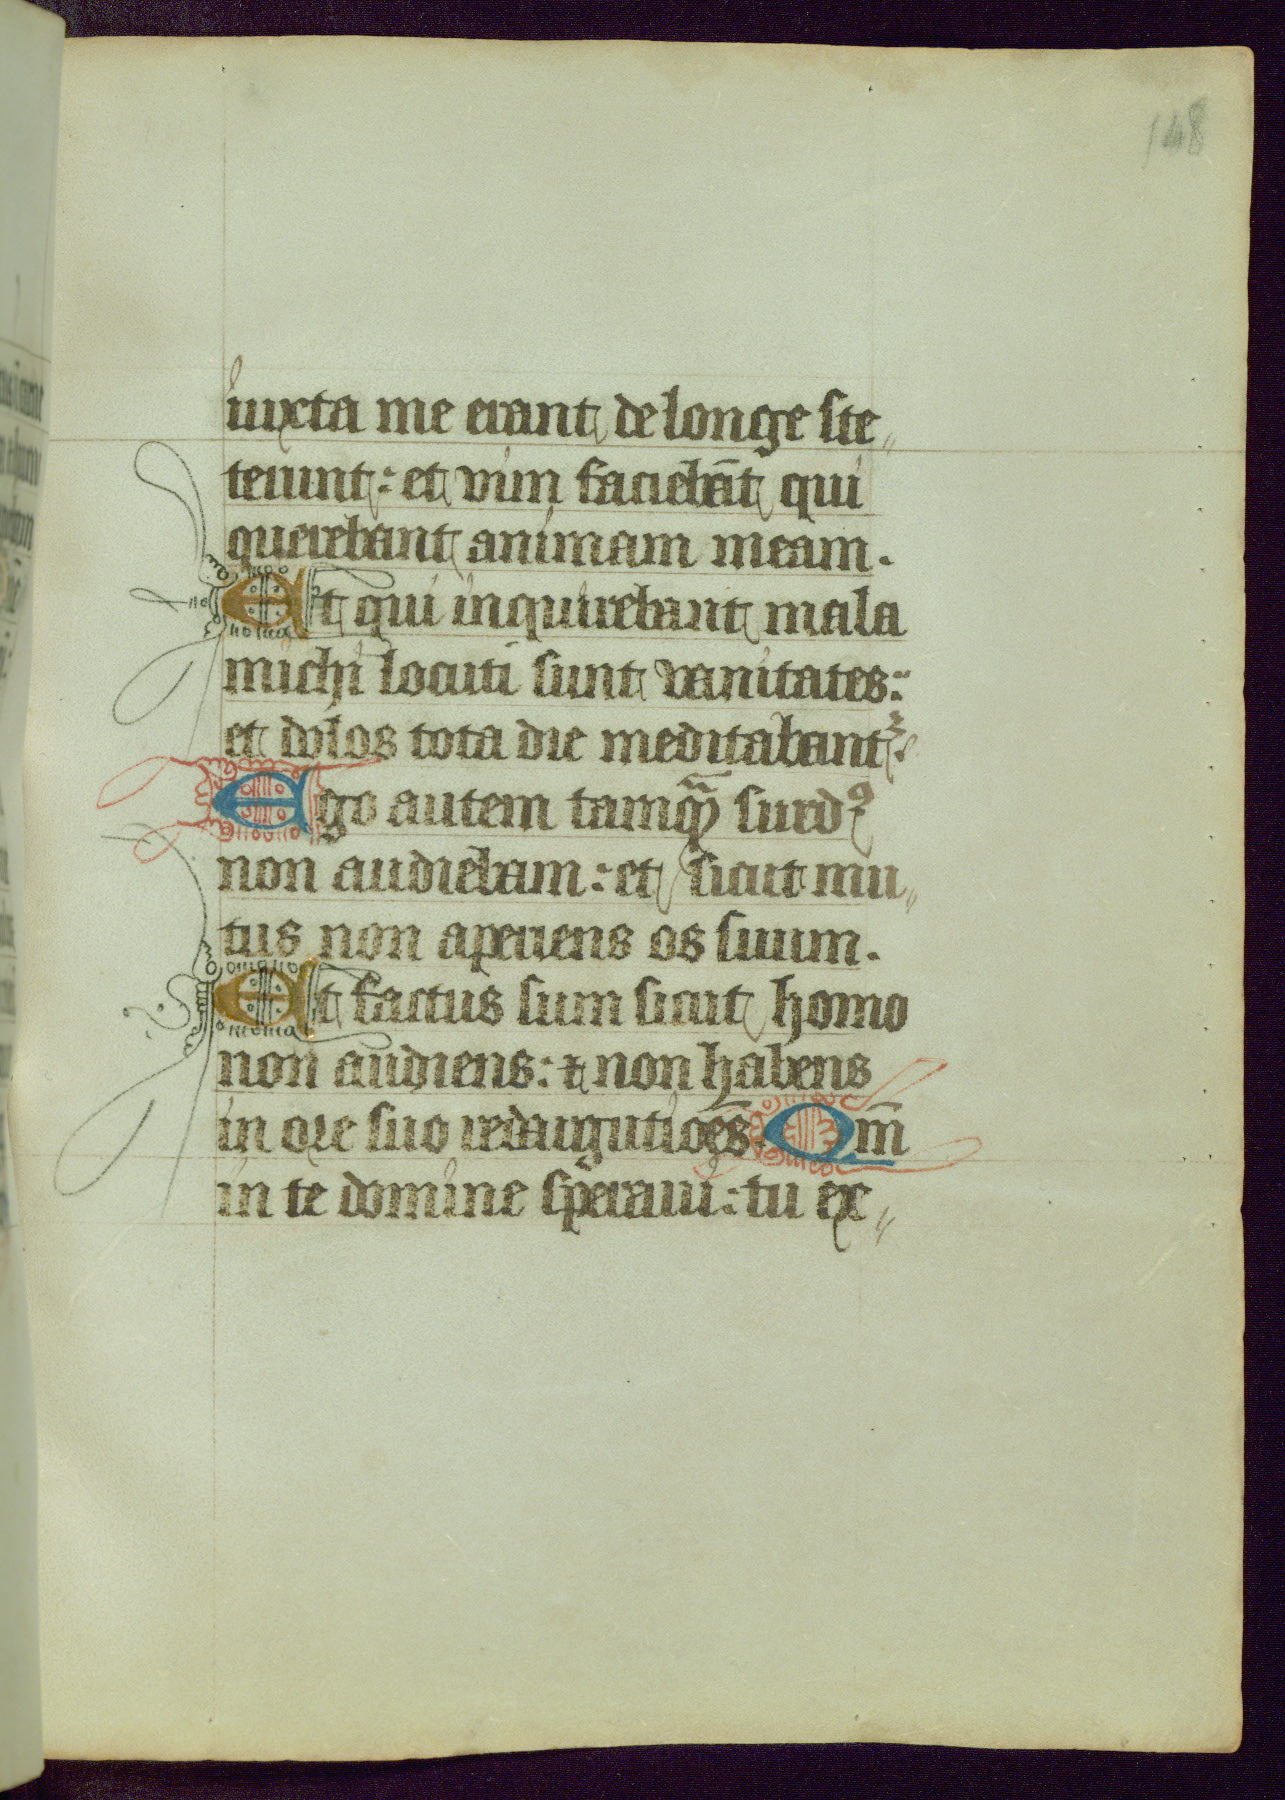 148
iuxta me erant de longe ste〃
terunt: et vim faciebāt qui
querebant animam meam.
Et qui inquirebant mala
michi locuti sunt vanitates:
et dolos tota die meditabantᷣ.
Ego autem tamqᷓ surdꝰ
non audiebam: et sicut mu〃
tus non aperiens os suum.
Et factus sum sicut homo
non audiens: ⁊ non habens
in ore suo redargutiōes. Qm̄
in te domine speraui: tu ex〃